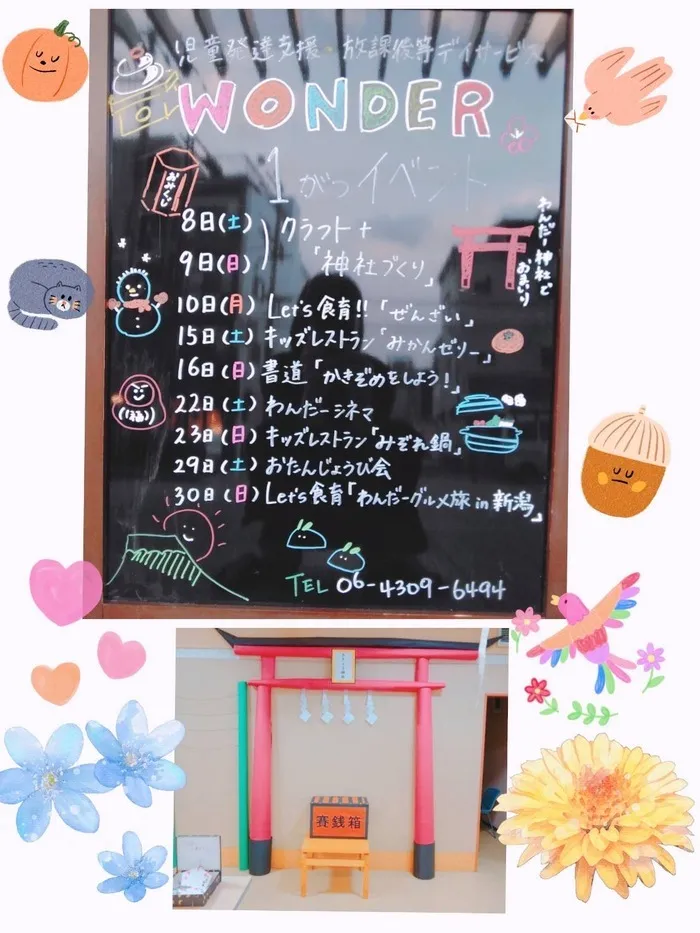 児童発達支援・放課後等デイサービス
WONDER
1がつイベント
おみくじ
8日(土) クラフト+
9日(日) 「神社づくり」
わんだー神社で
おまいり
10日(月) Let's食育!!「ぜんざい」
15日(土) キッズレストラン「みかんゼリー」
16日(日) 書道「かきぞめをしよう!」
22日(土) わんだーシネマ
23日(日) キッズレストラン「みぞれ鍋」
29日(土) おたんじょうび会
30日(日) Let's食育「わんだーグルメ旅in新潟」
(福)
TEL 06-4309-6494
賽銭箱